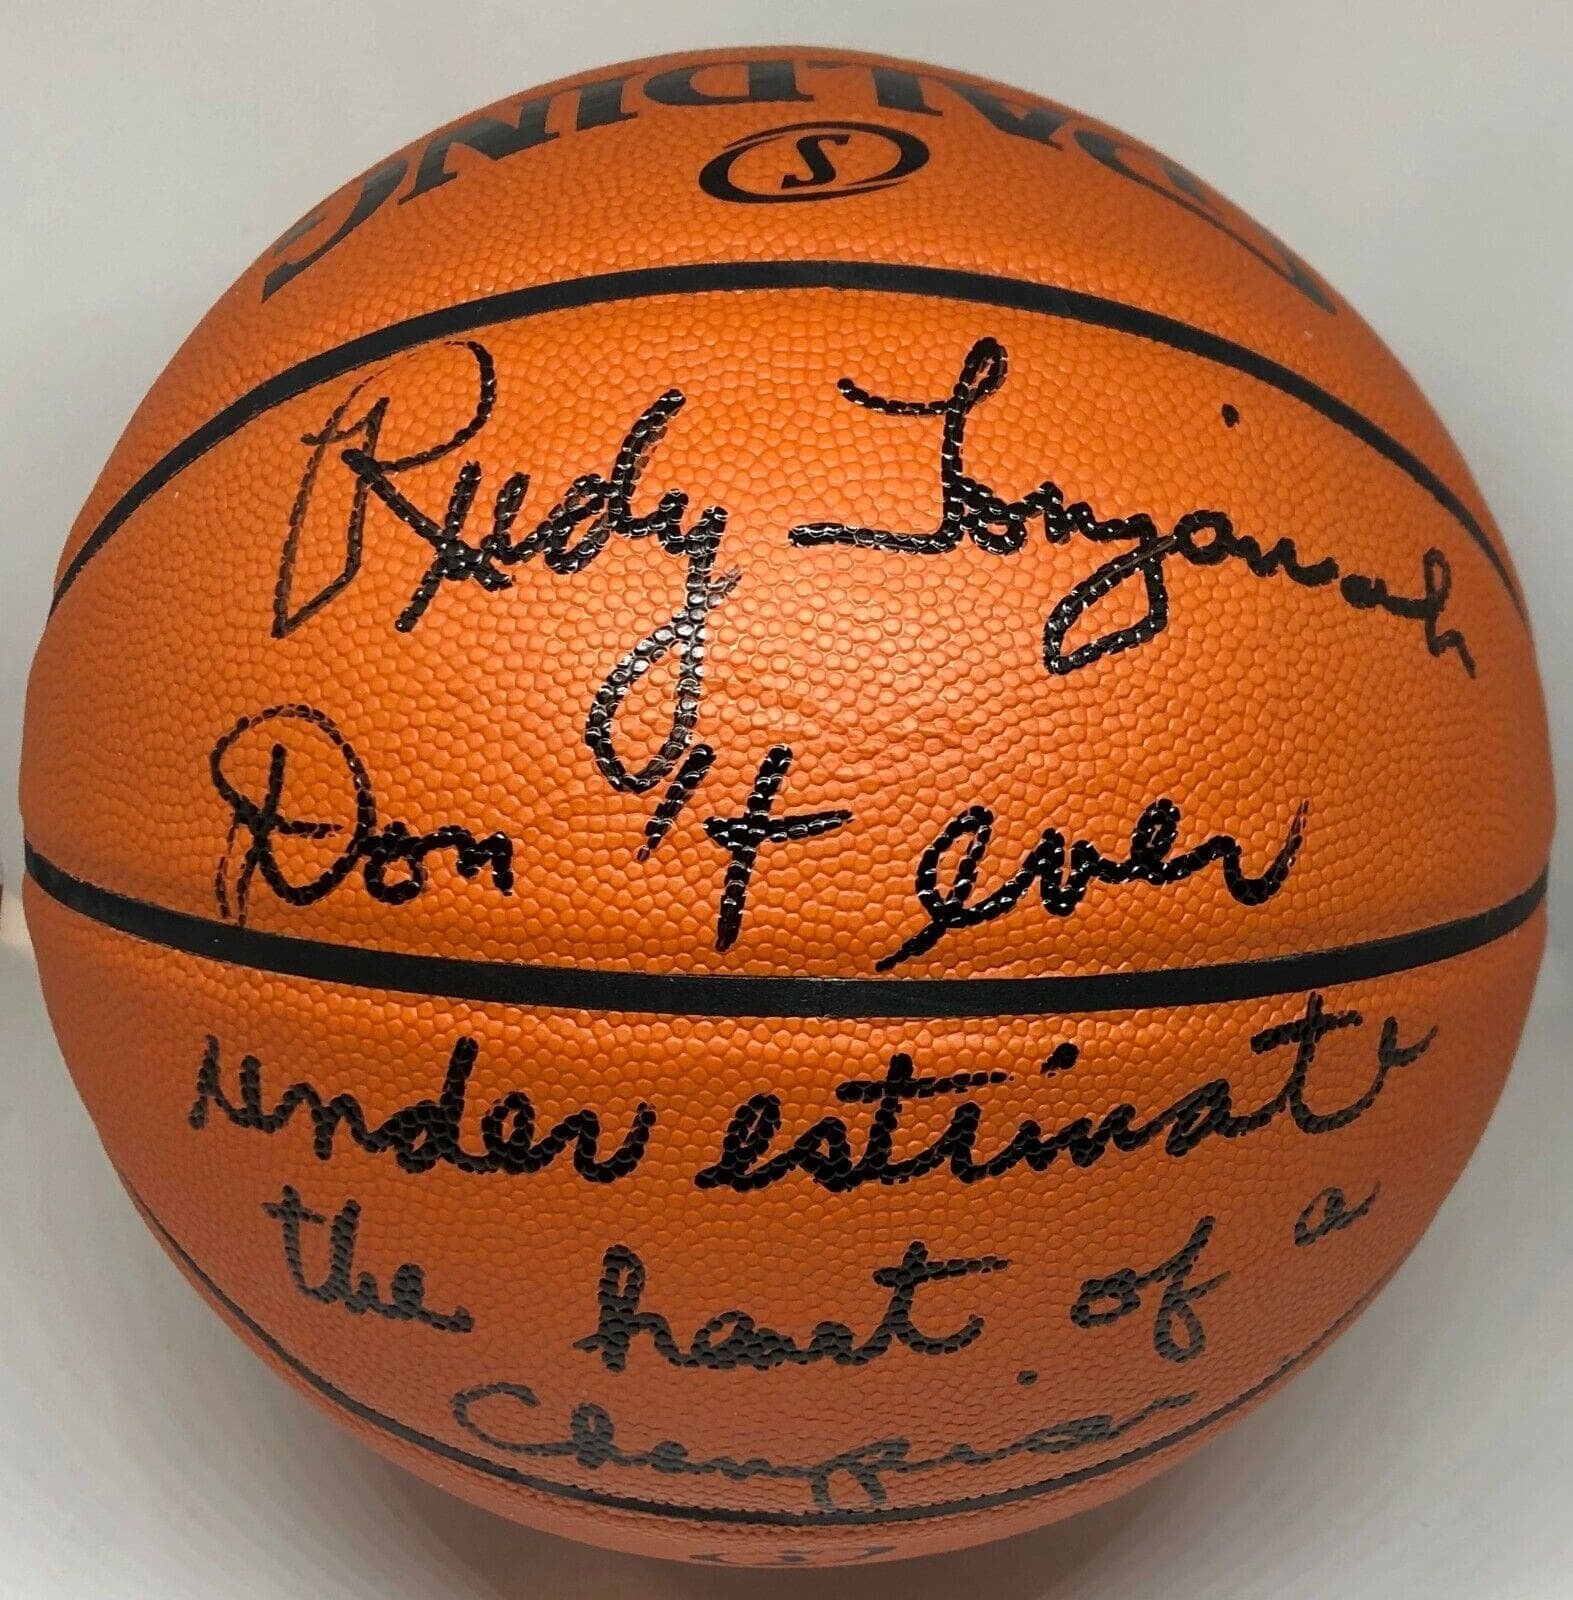 SPALDING
S
Rudy Tomjanovich
Don't ever
underestimate
the heart of a
Champion